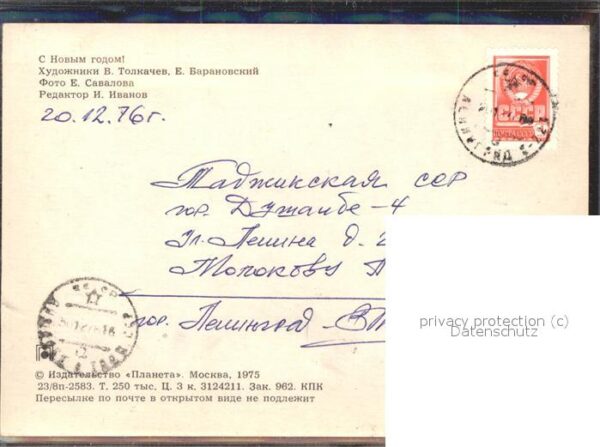 С Новым годом!
Художники В. Толкачев, Е. Барановский
Фото Е. Савалова
Редактор И. Иванов
20.12.76 г.
СССР
ЛЕНИНГРАД
Таджикская ССР
гор. Джамбе-4
Ул. Ленина д. 2
Молокову
гор. Ленинград
privacy protection (c)
Datenschutz
© Издательство «Планета». Москва, 1975
23/8п-2583. Т. 250 тыс. Ц. 3 к. 3124211. Зак. 962. КПК
Пересылке по почте в открытом виде не подлежит